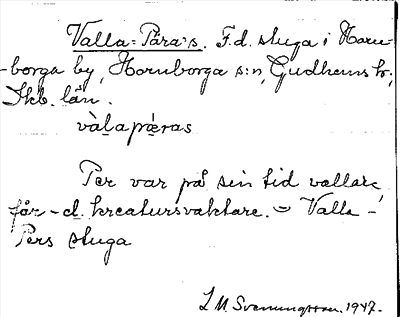 Valla-Pära's. F.d. stuga i Horn-
-borga by, Hornborga s:n, Gudhems hd,
Skb. län.
vàlapæras
Per var på sin tid vallare,
får- o. kreatursvaktare. = Valla-
Pers stuga
L M Svenungsson. 1947.